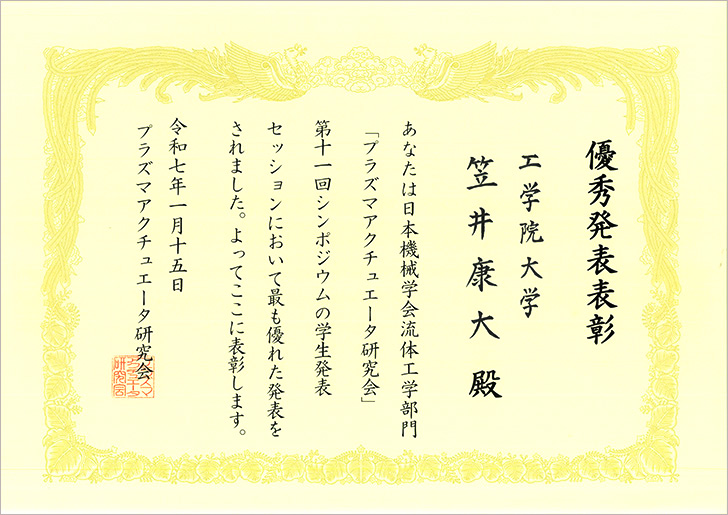 優秀発表表彰
工学院大学
笠井康大 殿
あなたは日本機械学会流体工学部門
「プラズマアクチュエータ研究会」
第十一回シンポジウムの学生発表
セッションにおいて最も優れた発表を
されました。よってここに表彰します。
令和七年一月十五日
プラズマアクチュエータ研究会